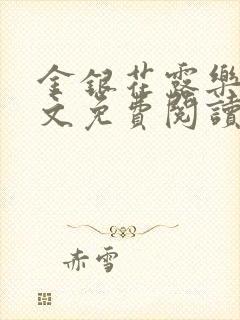 金銀花露樂
文免費閱讀
赤雪